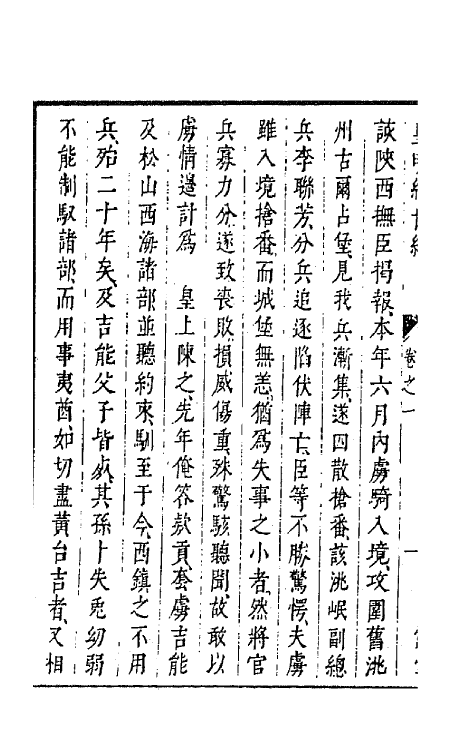 卷之一
該陝西撫臣揭報、本年六月內虜騎入境、攻圍舊洮
州古爾占堡、見我兵漸集、遂四散搶番、該洮岷副總
兵李聯芳、分兵追逐陷伏陣亡、臣等不勝驚愕、夫虜
雖入境搶番、而城堡無恙、猶爲失事之小者、然將官
兵寡力分、遂致喪敗損威傷重、殊驚駭聽聞、故敢以
虜情邊計爲　皇上陳之、先年俺答款貢、套虜吉能
及松山西海諸部並聽約束、馴至于今、西鎮之不用
兵、殆二十年矣、及吉能父子皆歿、其孫卜失兎幼弱
不能制馭諸部、而用事夷酋、如切盡黃台吉者、又相